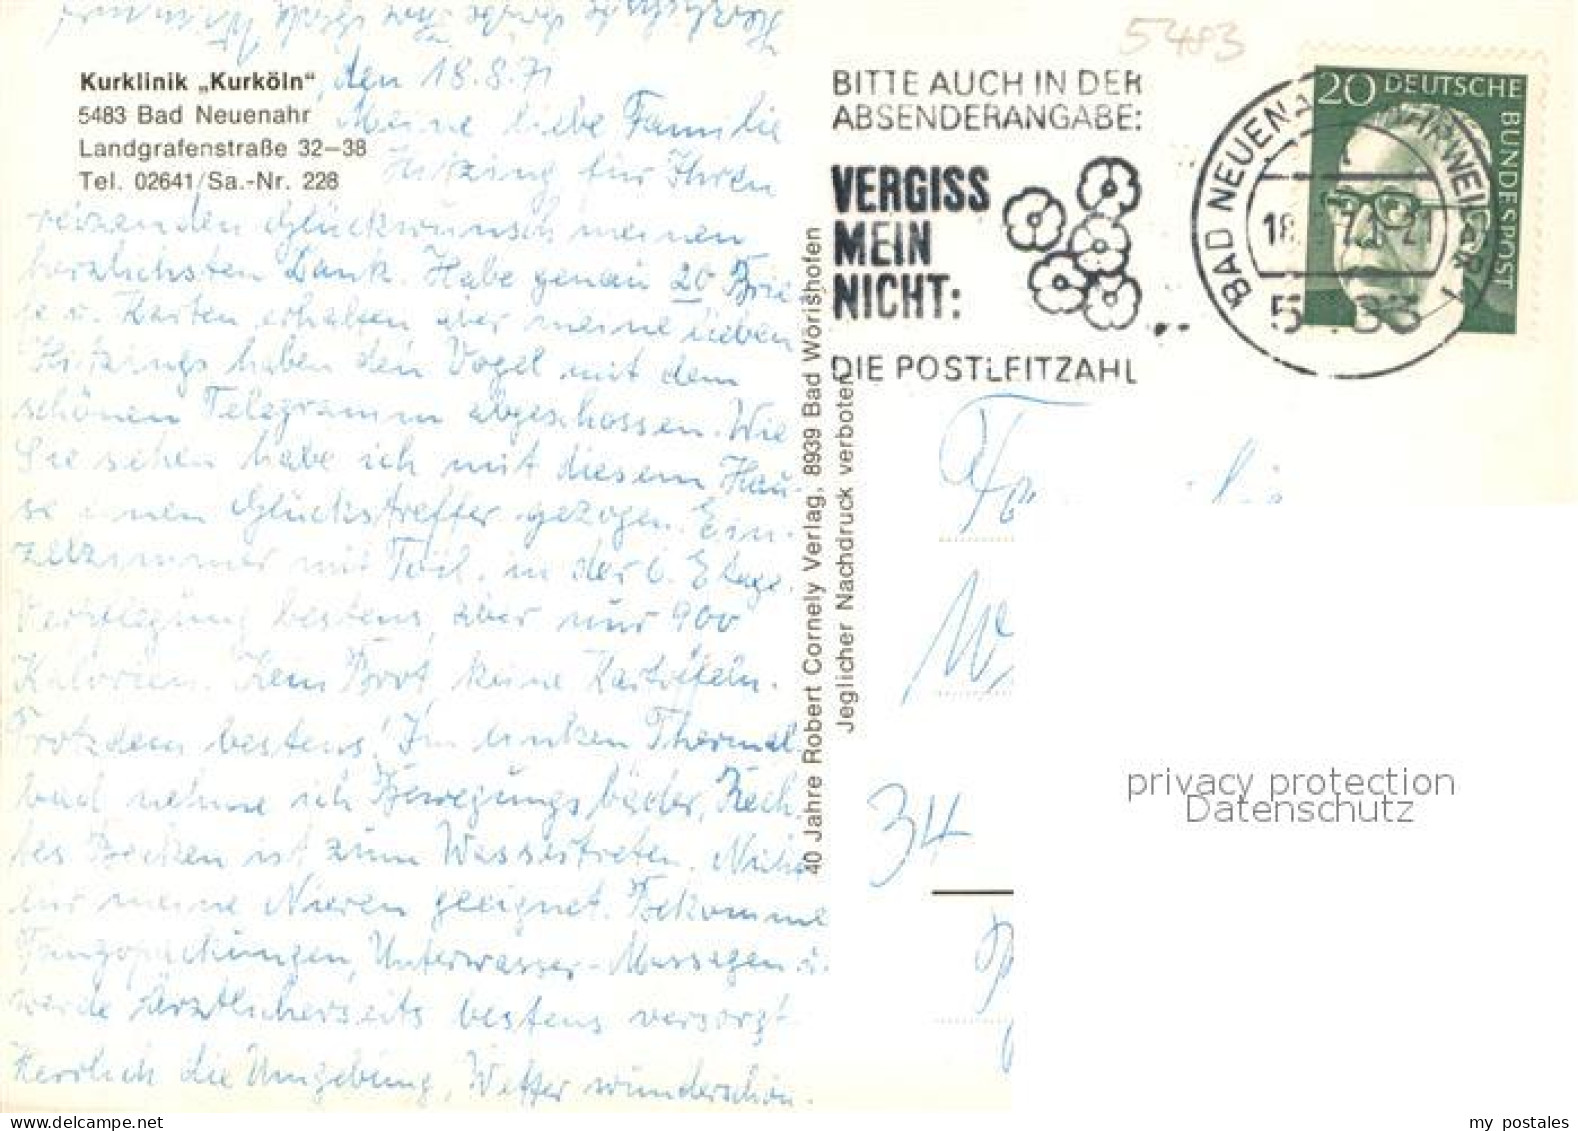 Kurklinik „Kurköln"
5483 Bad Neuenahr
Landgrafenstraße 32–38
Tel. 02641/Sa.-Nr. 228
den 18.8.71
Meine liebe Familie
Hitzing, für Ihren
reizenden Glückwunsch meinen
herzlichsten Dank. Habe genau 20 Brie-
fe u. Karten erhalten aber meine lieben
Hitzings haben den Vogel mit dem
schönen Telegramm abgeschossen. Wie
Sie sehen habe ich mit diesem Hau-
se einen Glückstreffer gezogen. Ein-
zelzimmer mit Toil. in der 6. Etage.
Verpflegung bestens, aber nur 900
Kalorien. Kein Brot, keine Kartoffeln.
Trotzdem bestens! Im linken Thermal
bad nehme ich Bewegungsbäder, Rech
tes Becken ist zum Wassertreten. Nicht
für meine Nieren geeignet. Bekomme
Fangopackungen, Unterwasser-Massagen u.
werde ärztlicherseits bestens versorgt
Herrlich die Umgebung, Wetter wunderschön.
40 Jahre Robert Cornely Verlag, 8939 Bad Wörishofen
Jeglicher Nachdruck verboten
5483
BITTE AUCH IN DER
ABSENDERANGABE:
VERGISS
MEIN
NICHT:
DIE POSTLEITZAHL
20 DEUTSCHE
BUNDESPOST
34
privacy protection
Datenschutz
my postales